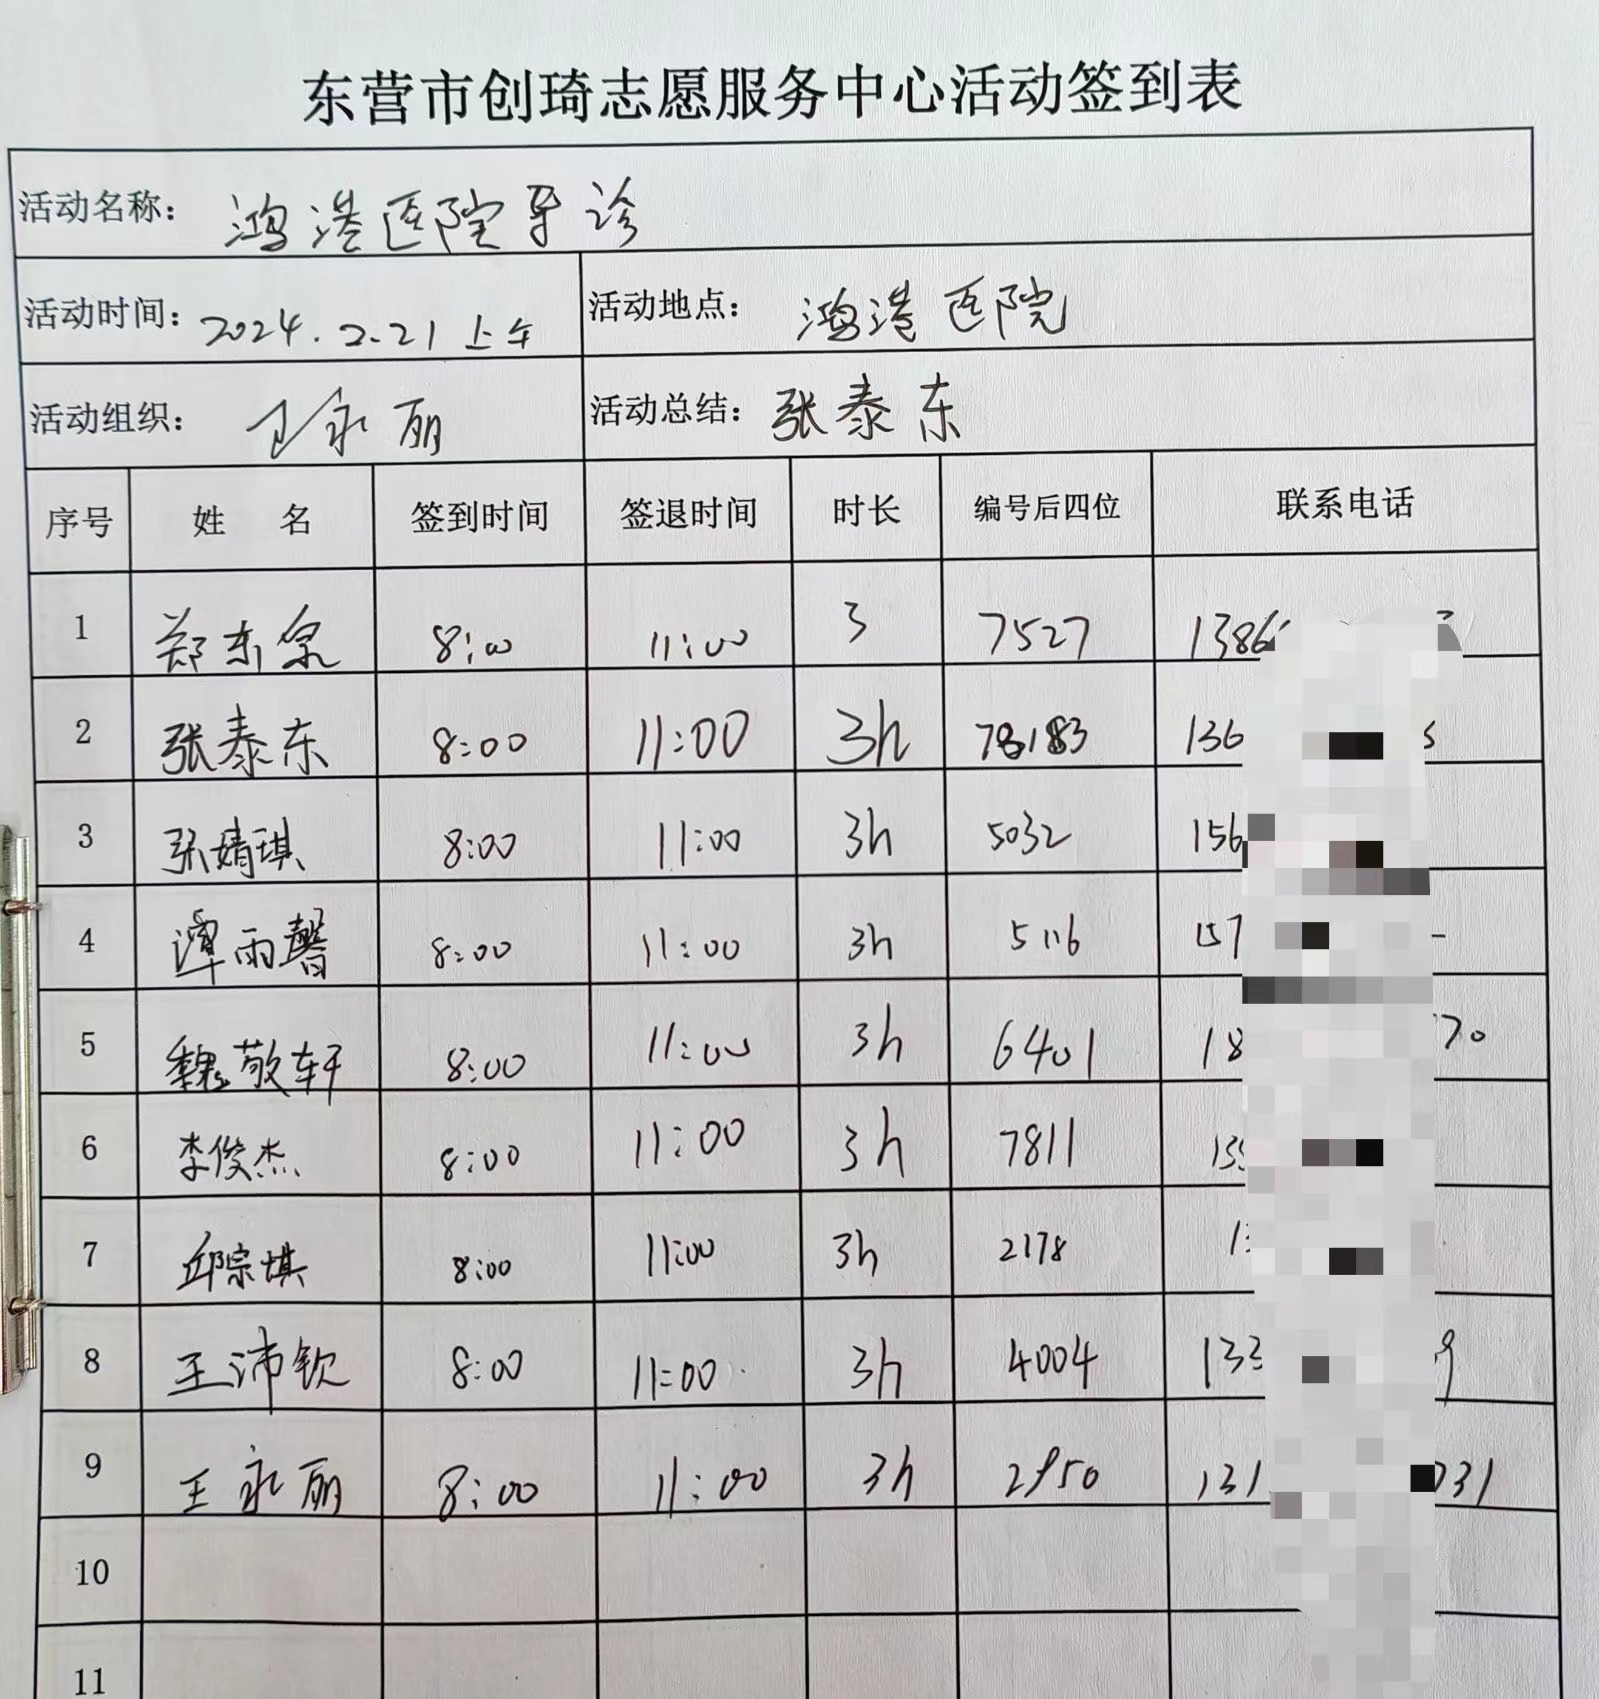 东营市创琦志愿服务中心活动签到表
活动名称: 鸿港医院导诊
活动时间: 2024.2.21上午 活动地点: 鸿港医院
活动组织: 王永丽 活动总结: 张泰东
序号 姓 名 签到时间 签退时间 时长 编号后四位 联系电话
1 郑东泉 8:00 11:00 3 7527 1386
2 张泰东 8:00 11:00 3h 8183 136
3 张婧琪 8:00 11:00 3h 5032 156
4 谭雨馨 8:00 11:00 3h 5116 157
5 魏敬轩 8:00 11:00 3h 6401 18 70
6 李俊杰 8:00 11:00 3h 7811 13
7 邱宗琪 8:00 11:00 3h 2178 1
8 王沛钦 8:00 11:00 3h 4004 133 9
9 王永丽 8:00 11:00 3h 2950 131 731
10
11